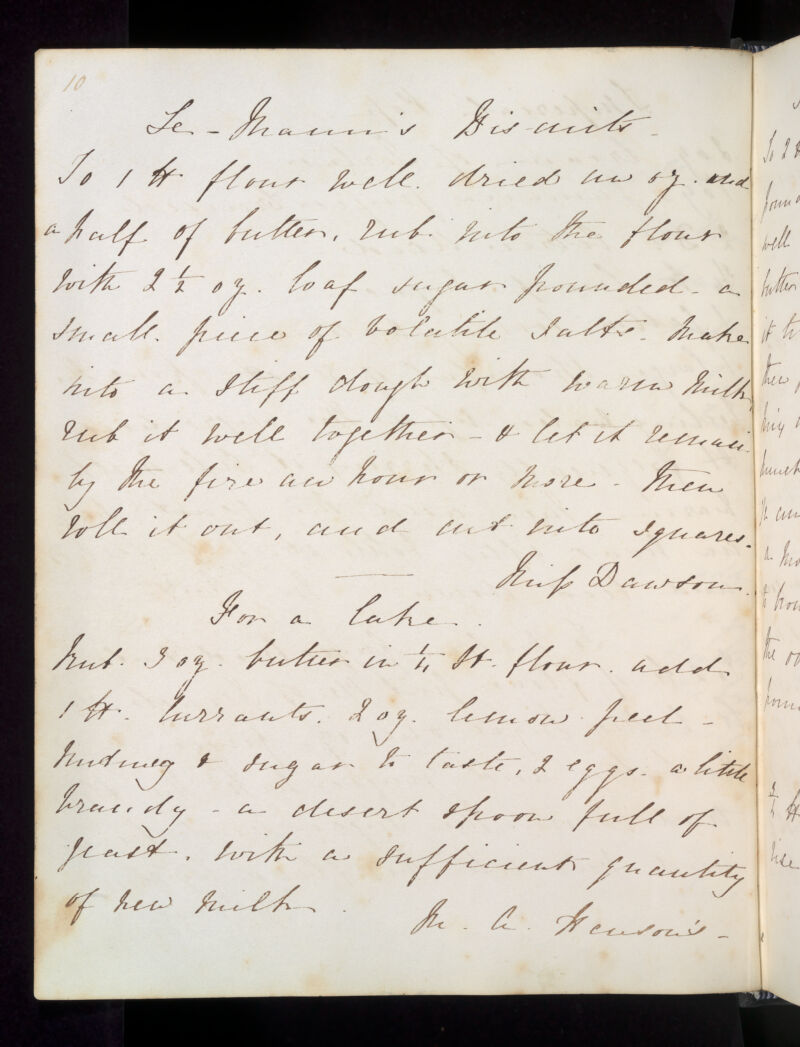 10
Le-Mann's Biscuits
To 1 lb flour well dried an oz. and
a half of butter, rub into the flour
with 2 1/2 oz. loaf sugar pounded - a
small piece of volatile salts - make
into a stiff dough with warm milk,
rub it well together - & let it remain
by the fire an hour or more - then
roll it out, and cut into squares.
Miss Dawson.
For a Cake.
Rub 3 oz. butter in 1/4 St. flour. add
1 lb. Currants. 2 oz. lemon peel -
Nutmeg & sugar to taste, 2 eggs. a little
brandy - a desert spoon full of
yeast. with a sufficient quantity
of new milk.
M. A. Henson's -